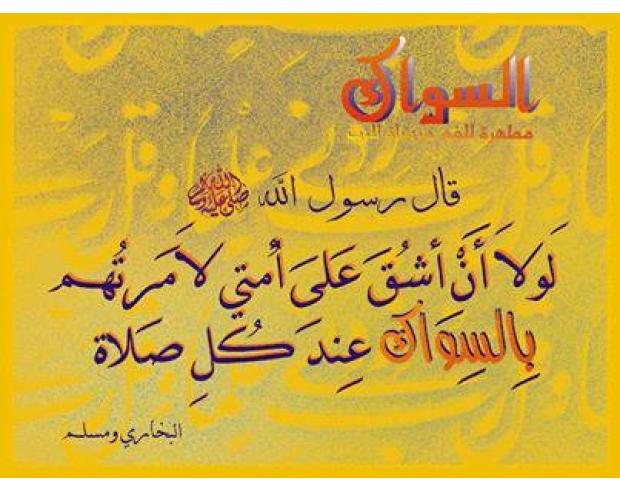 السواك
مطهرة للفم مرضاة للرب
قال رسول الله ﷺ
لَولاَ أَنَّ أشُقَ عَلَىَ أُمتي لاَمَرتُهم
بِالسِوَاكْ عِندَ كُلِ صَلاة
البخاري ومسلم